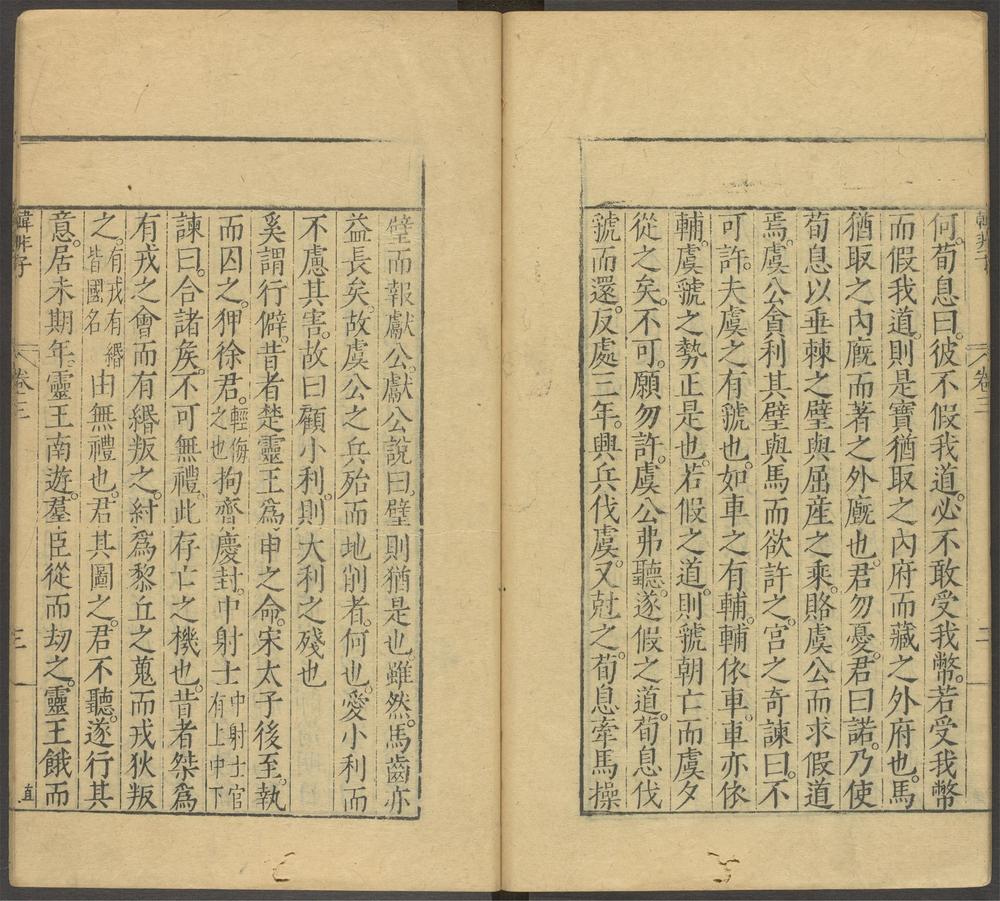 何。荀息曰。彼不假我道。必不敢受我幣。若受我幣
而假我道。則是寶猶取之內府而藏之外府也。馬
猶取之內廐而著之外廐也。君勿憂。君曰諾。乃使
荀息以垂棘之璧與屈產之乘。賂虞公而求假道
焉。虞公貪利其璧與馬而欲許之。宮之奇諫曰。不
可許。夫虞之有虢也。如車之有輔。輔依車。車亦依
輔。虞虢之勢正是也。若假之道。則虢朝亡而虞夕
從之矣。不可。願勿許。虞公弗聽。遂假之道。荀息伐
虢而還。反處三年。興兵伐虞。又尅之。荀息牽馬操
卷三
二
璧而報獻公。獻公說曰。璧則猶是也。雖然。馬齒亦
益長矣。故虞公之兵殆而地削者。何也。愛小利而
不慮其害。故曰顧小利。則大利之殘也
奚謂行僻。昔者楚靈王爲申之命。宋太子後至。執
而囚之。狎徐君。輕侮之也拘齊慶封。中射士中射士官有上中下
諫曰。合諸矦。不可無禮。此存亡之機也。昔者桀爲
有戎之會而有緡叛之。紂爲黎丘之蒐而戎狄叛
之。有戎有緡皆國名由無禮也。君其圖之。君不聽。遂行其
意。居未期年。靈王南遊。羣臣從而劫之。靈王餓而
韓非子
卷三
三
直